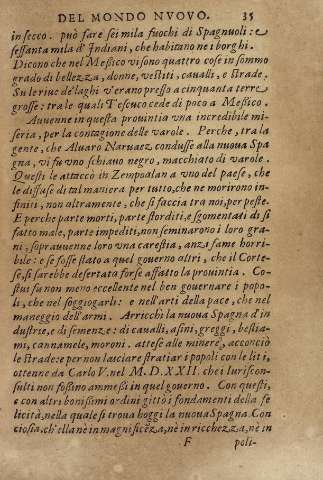 DEL MONDO NVOVO. 35
in secco. può fare sei mila fuochi di Spagnuoli: e
sessanta mila d'Indiani, che habitano ne i borghi.
Dicono che nel Messico vi sono quattro cose in sommo
grado di bellezza, donne, vestiti, caualli, e strade.
Su le riue de' laghi v'erano presso a cinquanta terre
grosse: tra le quali Tescuco cede di poco a Messico.
Auuenne in questa prouintia vna incredibile mi-
seria, per la contagione delle varole. Perche, tra la
gente, che Aluaro Naruaez condusse alla nuoua Spa
gna, vi fu vno schiauo negro, macchiato di varole.
Questi le attaccò in Zempoalan a vno del paese, che
le diffuse di tal maniera per tutto, che ne morirono in-
finiti, non altramente, che si faccia tra noi, per peste.
E perche parte morti, parte storditi, e sgomentati di sì
fatto male, parte impediti, non seminarono i loro gra-
ni, soprauuenne loro vna carestia, anzi fame horri-
bile: e se fosse stato a quel gouerno altri, che il Corte-
se, si sarebbe desertata forse affatto la prouintia. Co-
stui fu non meno eccellente nel ben gouernare i popo-
li, che nel soggiogarli: e nell'arti della pace, che nel
maneggio dell'armi. Arricchì la nuoua Spagna d'in
dustrie, e di semenze: di caualli, asini, greggi, bestia-
mi, cannamele, moroni. attese alle minere, acconciò
le strade: e per non lasciare stratiar i popoli con le liti,
ottenne da Carlo V. nel M. D. XXII. che i Iuriscon-
sulti non fossino ammessi in quel gouerno. Con questi,
e con altri bonissimi ordini gittò i fondamenti della fe
licità, nella quale si troua hoggi la nuoua Spagna. Con
ciosia, ch'ella nè in magnificēza, nè in ricchezza, nè in
F poli-